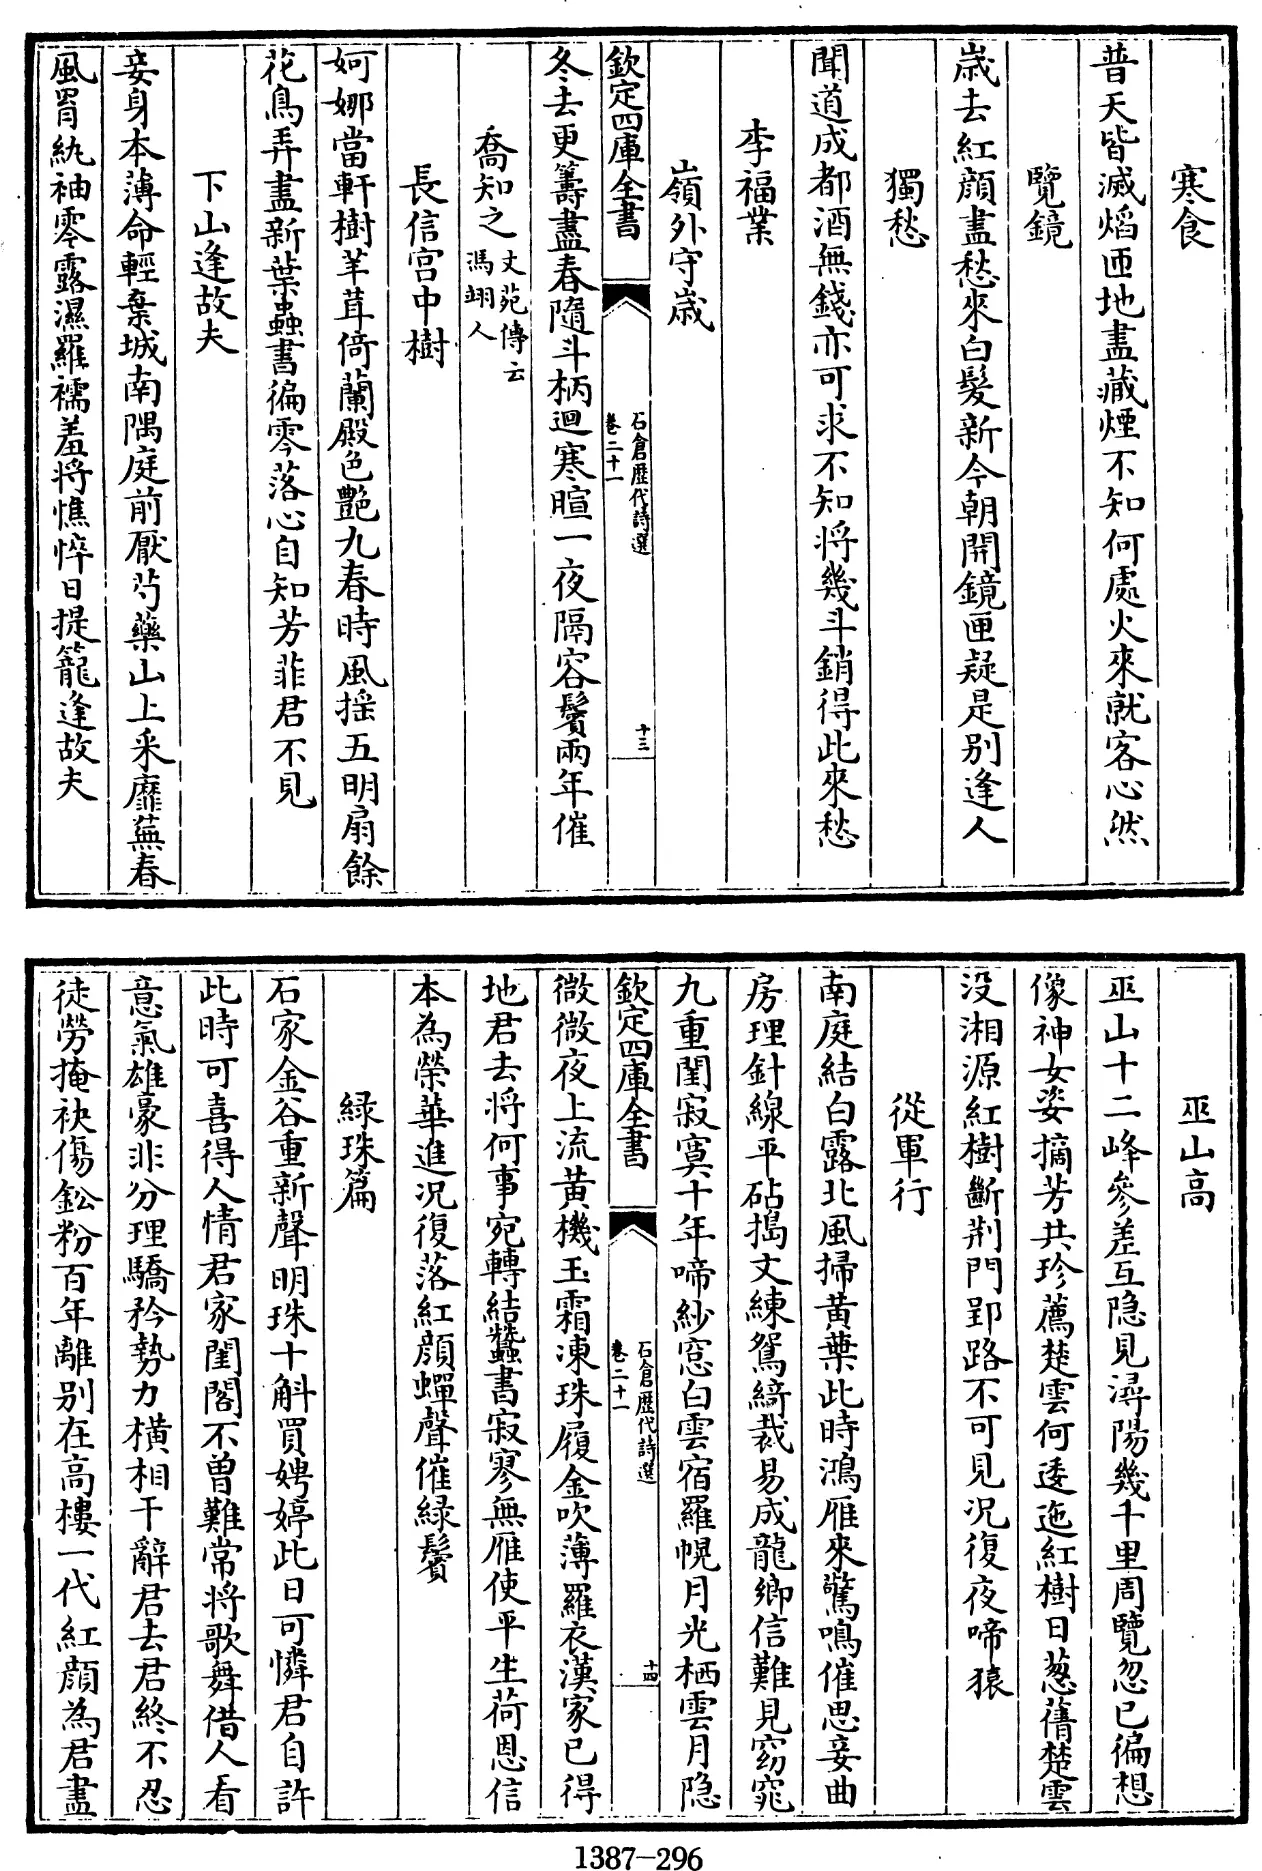 寒食
普天皆滅熖匝地盡藏煙不知何處火來就客心然
覽鏡
歲去紅顔盡愁來白髮新今朝開鏡匣疑是别逢人
獨愁
聞道成都酒無錢亦可求不知将幾斗銷得此來愁
李福業
嶺外守歲
欽定四庫全書
石倉歷代詩選
卷二十一
十三
冬去更籌盡春隨斗柄迴寒暄一夜隔容鬢兩年催
喬知之
文苑傳云
馮翊人
長信宫中樹
婀娜當軒樹芊茸倚蘭殿色艷九春時風摇五明扇餘
花鳥弄盡新葉蟲書徧零落心自知芳菲君不見
下山逢故夫
妾身本薄命輕棄城南隅庭前厭芍藥山上采蘼蕪春
風罥紈袖零露濕羅襦羞将憔悴日提籠逢故夫
巫山高
巫山十二峰參差互隐見潯陽幾千里周覽忽已徧想
像神女姿摘芳共珍薦楚雲何逶迤紅樹日葱蒨楚雲
没湘源紅樹斷荆門郢路不可見況復夜啼猿
從軍行
南庭結白露北風掃黄葉此時鴻雁來驚鳴催思妾曲
房理針線平砧搗文練鴛綺裁易成龍鄉信難見窈窕
九重閨寂寞十年啼紗窓白雲宿羅幌月光栖雲月隐
欽定四庫全書
石倉歷代詩選
卷二十一
十四
微微夜上流黄機玉霜凍珠履金吹薄羅衣漢家已得
地君去将何事宛轉結蠶書寂寥無雁使平生荷恩信
本為榮華進況復落紅顔蟬聲催緑鬢
緑珠篇
石家金谷重新聲明珠十斛買娉婷此日可憐君自許
此時可喜得人情君家閨閣不曾難常将歌舞借人看
意氣雄豪非分理驕矜勢力横相干辭君去君終不忍
徒勞掩袂傷鉛粉百年離别在高樓一代紅顔為君盡
1387—296